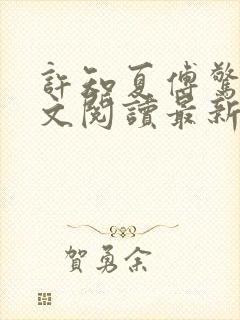 許知夏傅驚
文閱讀最新
賀勇余